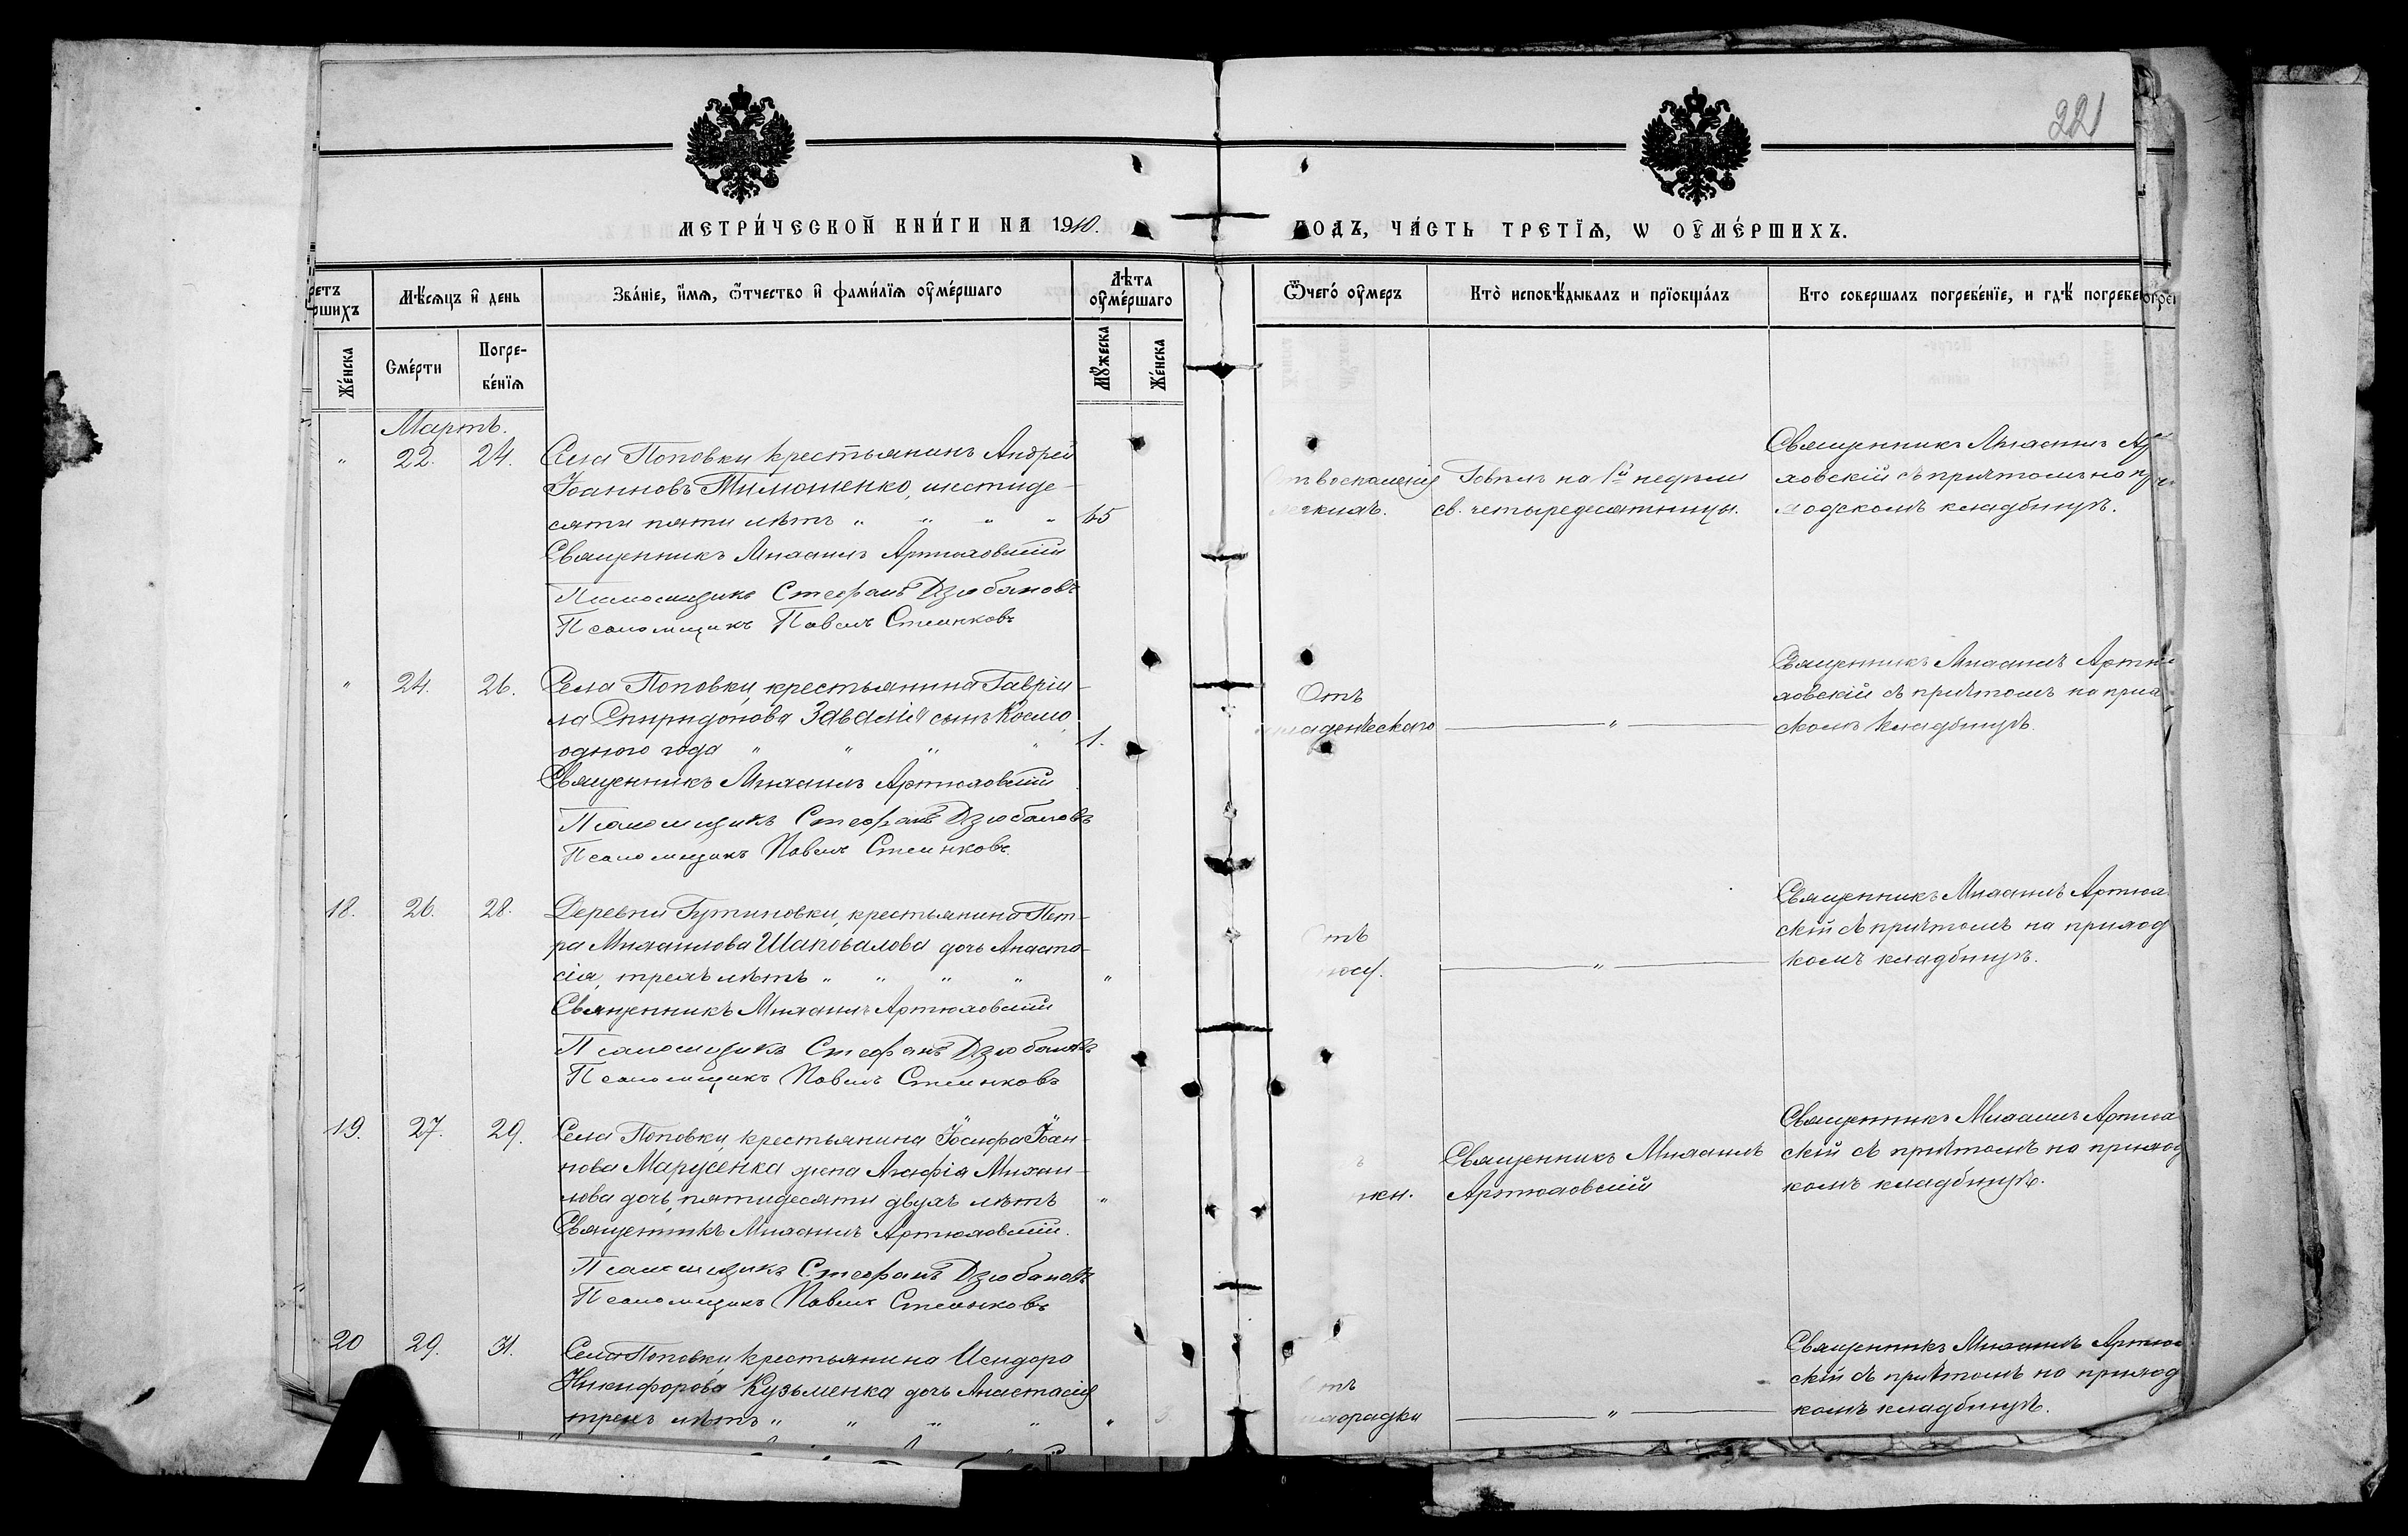 221
МЕТРИ́ЧЕСКОЙ КНИ́ГИ НА 1910.
ГОДЪ, ЧА́СТЬ ТРЕТІѦ, Ѡ ОУМЕ́РШИХЪ.
Мѣсѧцъ и день
Зва́ніе, и́мѧ, ѻ́тчество и фами́лїѧ оуме́ршаго
Лѣта оуме́ршаго
Ѿчегѡ̀ оу́меръ
Кто̀ исповѣ́дывалъ и прїобща́лъ
Кто совершалъ погребе́нїе, и гдѣ̀ погребе
Же́нска
Сме́рти
Погре-
бе́нїѧ
Мꙋ́жеска
Же́нска
Мартъ.
" 22. 24. Села Поповки крестьянинъ Андрей
Іоанновъ Тимошенко, шестиде-
сяти пяти лѣтъ " " " " 65
Священникъ Михаилъ Артюховскій
Псаломщикъ Стефанъ Дзюбановъ
Псаломщикъ Павелъ
воспаленія
Говѣлъ на 1й недѣли
св. четыредесятницы.
Священникъ Михаилъ
ховскій съ причтомъ на
кладбищѣ.
" 24. 26. Села Поповки крестьянина Гаврі-
ла Спиридонова сынъ Косма
одного года " " " " 1.
Священникъ Михаилъ Артюховскій
Псаломщикъ Стефанъ Дзюбановъ
Псаломщикъ Павелъ
Отъ
младенческаго
"
Священникъ Михаилъ Артю
ховскій съ причтомъ на прих
скомъ кладбищѣ.
18. 26. 28. Деревни Гутировки, крестьянина Пет-
ра Михаилова Шаповалова дочь Анаста-
сія, трехъ лѣтъ " " " " "
Священникъ Михаилъ Артюховскій
Псаломщикъ Стефанъ Дзюбановъ
Псаломщикъ Павелъ
"
Священникъ Михаилъ Артюх
скій съ причтомъ на приход
комъ кладбищѣ.
19. 27. 29. Села Поповки, крестьянина Іосифа Іоан-
нова Марусенка жена Агафія Михаи-
лова дочь, пятидесяти двухъ лѣтъ "
Священникъ Михаилъ Артюховскій.
Псаломщикъ Стефанъ Дзюбановъ
Псаломщикъ Павелъ
Священникъ Михаилъ
Артюховскій
Священникъ Михаилъ Артюх
скій съ причтомъ на приход
комъ кладбищѣ.
20 29. 31. Села Поповки, крестьянина Исидора
Никифорова Кузьменка дочь Анастасія
трехъ лѣтъ " " " " "
"
Священникъ Михаилъ Артюх
скій съ причтомъ на приход
комъ кладбищѣ.